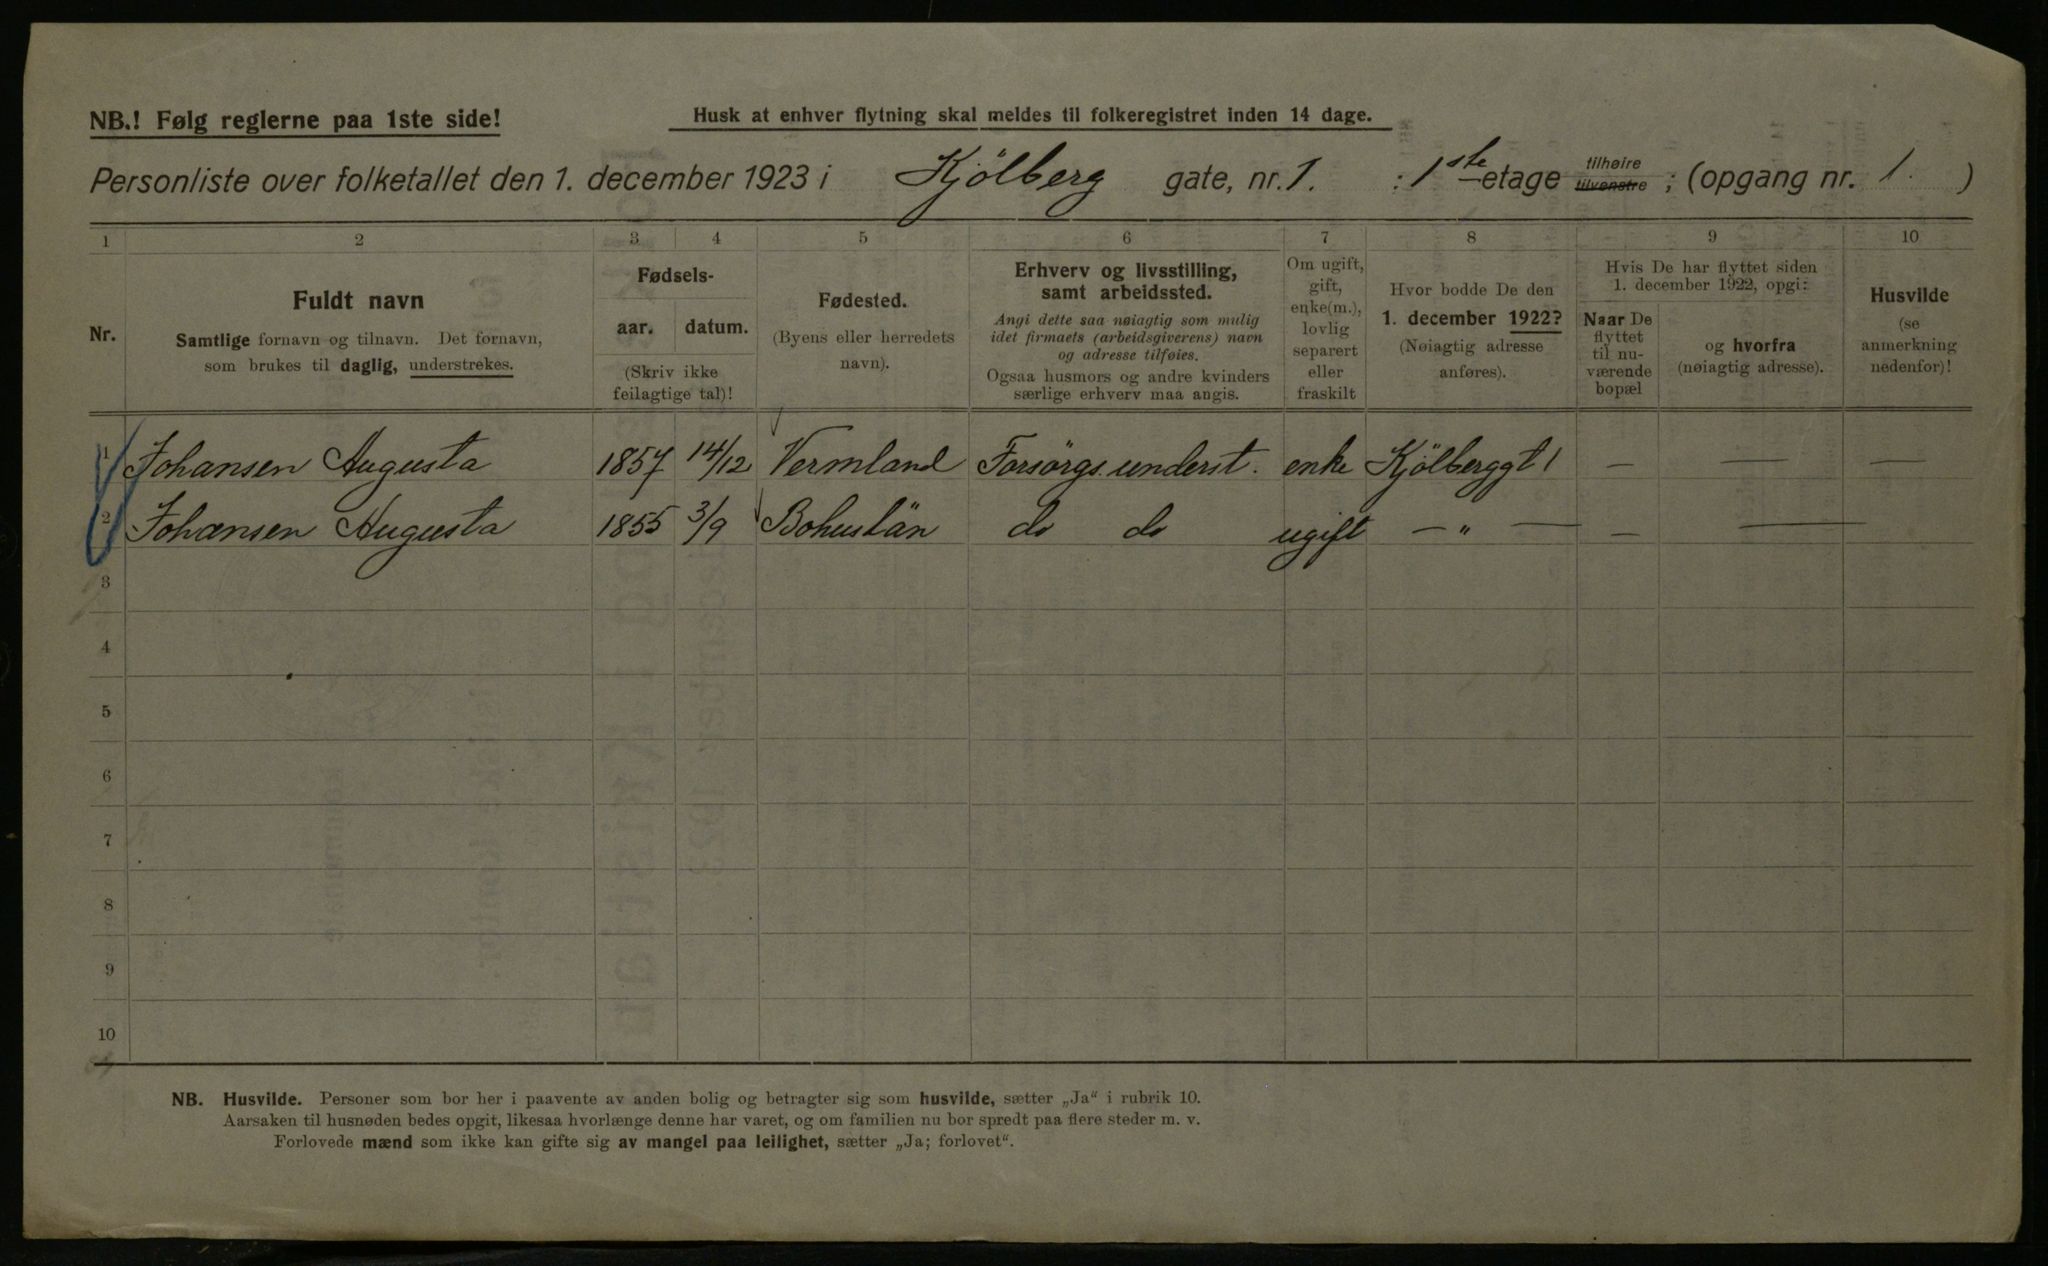 NB.! Følg reglerne paa 1ste side!
Husk at enhver flytning skal meldes til folkeregistret inden 14 dage.
Personliste over folketallet den 1. december 1923 i Kjölberg gate, nr. 1. : 1ste etage tilhøire tilvenstre ; (opgang nr. 1. )
1 2 3 4 5 6 7 8 9 10
Nr.
Fuldt navn
Samtlige fornavn og tilnavn. Det fornavn,
som brukes til daglig, understrekes.
Fødsels-
aar. datum.
(Skriv ikke
feilagtige tal)!
Fødested.
(Byens eller herredets
navn).
Erhverv og livsstilling,
samt arbeidssted.
Angi dette saa nøiagtig som mulig
idet firmaets (arbeidsgiverens) navn
og adresse tilføies.
Ogsaa husmors og andre kvinders
særlige erhverv maa angis.
Om ugift,
gift,
enke(m.),
lovlig
separert
eller
fraskilt
Hvor bodde De den
1. december 1922?
(Nøiagtig adresse
anføres).
Hvis De har flyttet siden
1. december 1922, opgi:
Naar De
flyttet
til nu-
værende
bopæl
og hvorfra
(nøiagtig adresse).
Husvilde
(se
anmerkning
nedenfor)!
1 Johansen Augusta 1857 14/12 Vermland Forsörgs. underst. enke Kjölberggt 1 — — —
2 Johansen Augusta 1855 3/9 Bohuslän do do ugift — „ — — —
3
4
5
6
7
8
9
10
NB. Husvilde. Personer som bor her i paavente av anden bolig og betragter sig som husvilde, sætter „Ja“ i rubrik 10.
Aarsaken til husnøden bedes opgit, likesaa hvorlænge denne har varet, og om familien nu bor spredt paa flere steder m. v.
Forlovede mænd som ikke kan gifte sig av mangel paa leilighet, sætter „Ja; forlovet“.